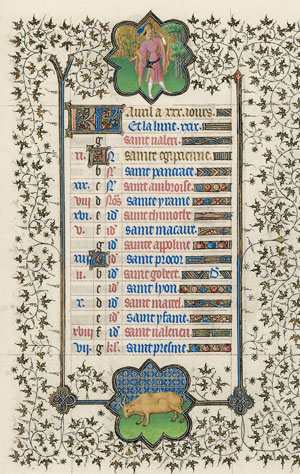 Auril a xxx. iours.
Et la lune. xxix.
g saint ualeri.
xi. A N̄ sainte egipcienne.
b saint pancrace.
xix. c N̄ saint ambroise.
viii d Nōs sainte yraine
xvi. e id saint thimothe
v. f id saint macaire
g id sainte apoline
xiii A id saint procor
ii. b id saint gobert
c id saint lyon
x. d id saint marcel
e id saint ysane
xviii f id saint ualerien
vii. g kl. saint presme.